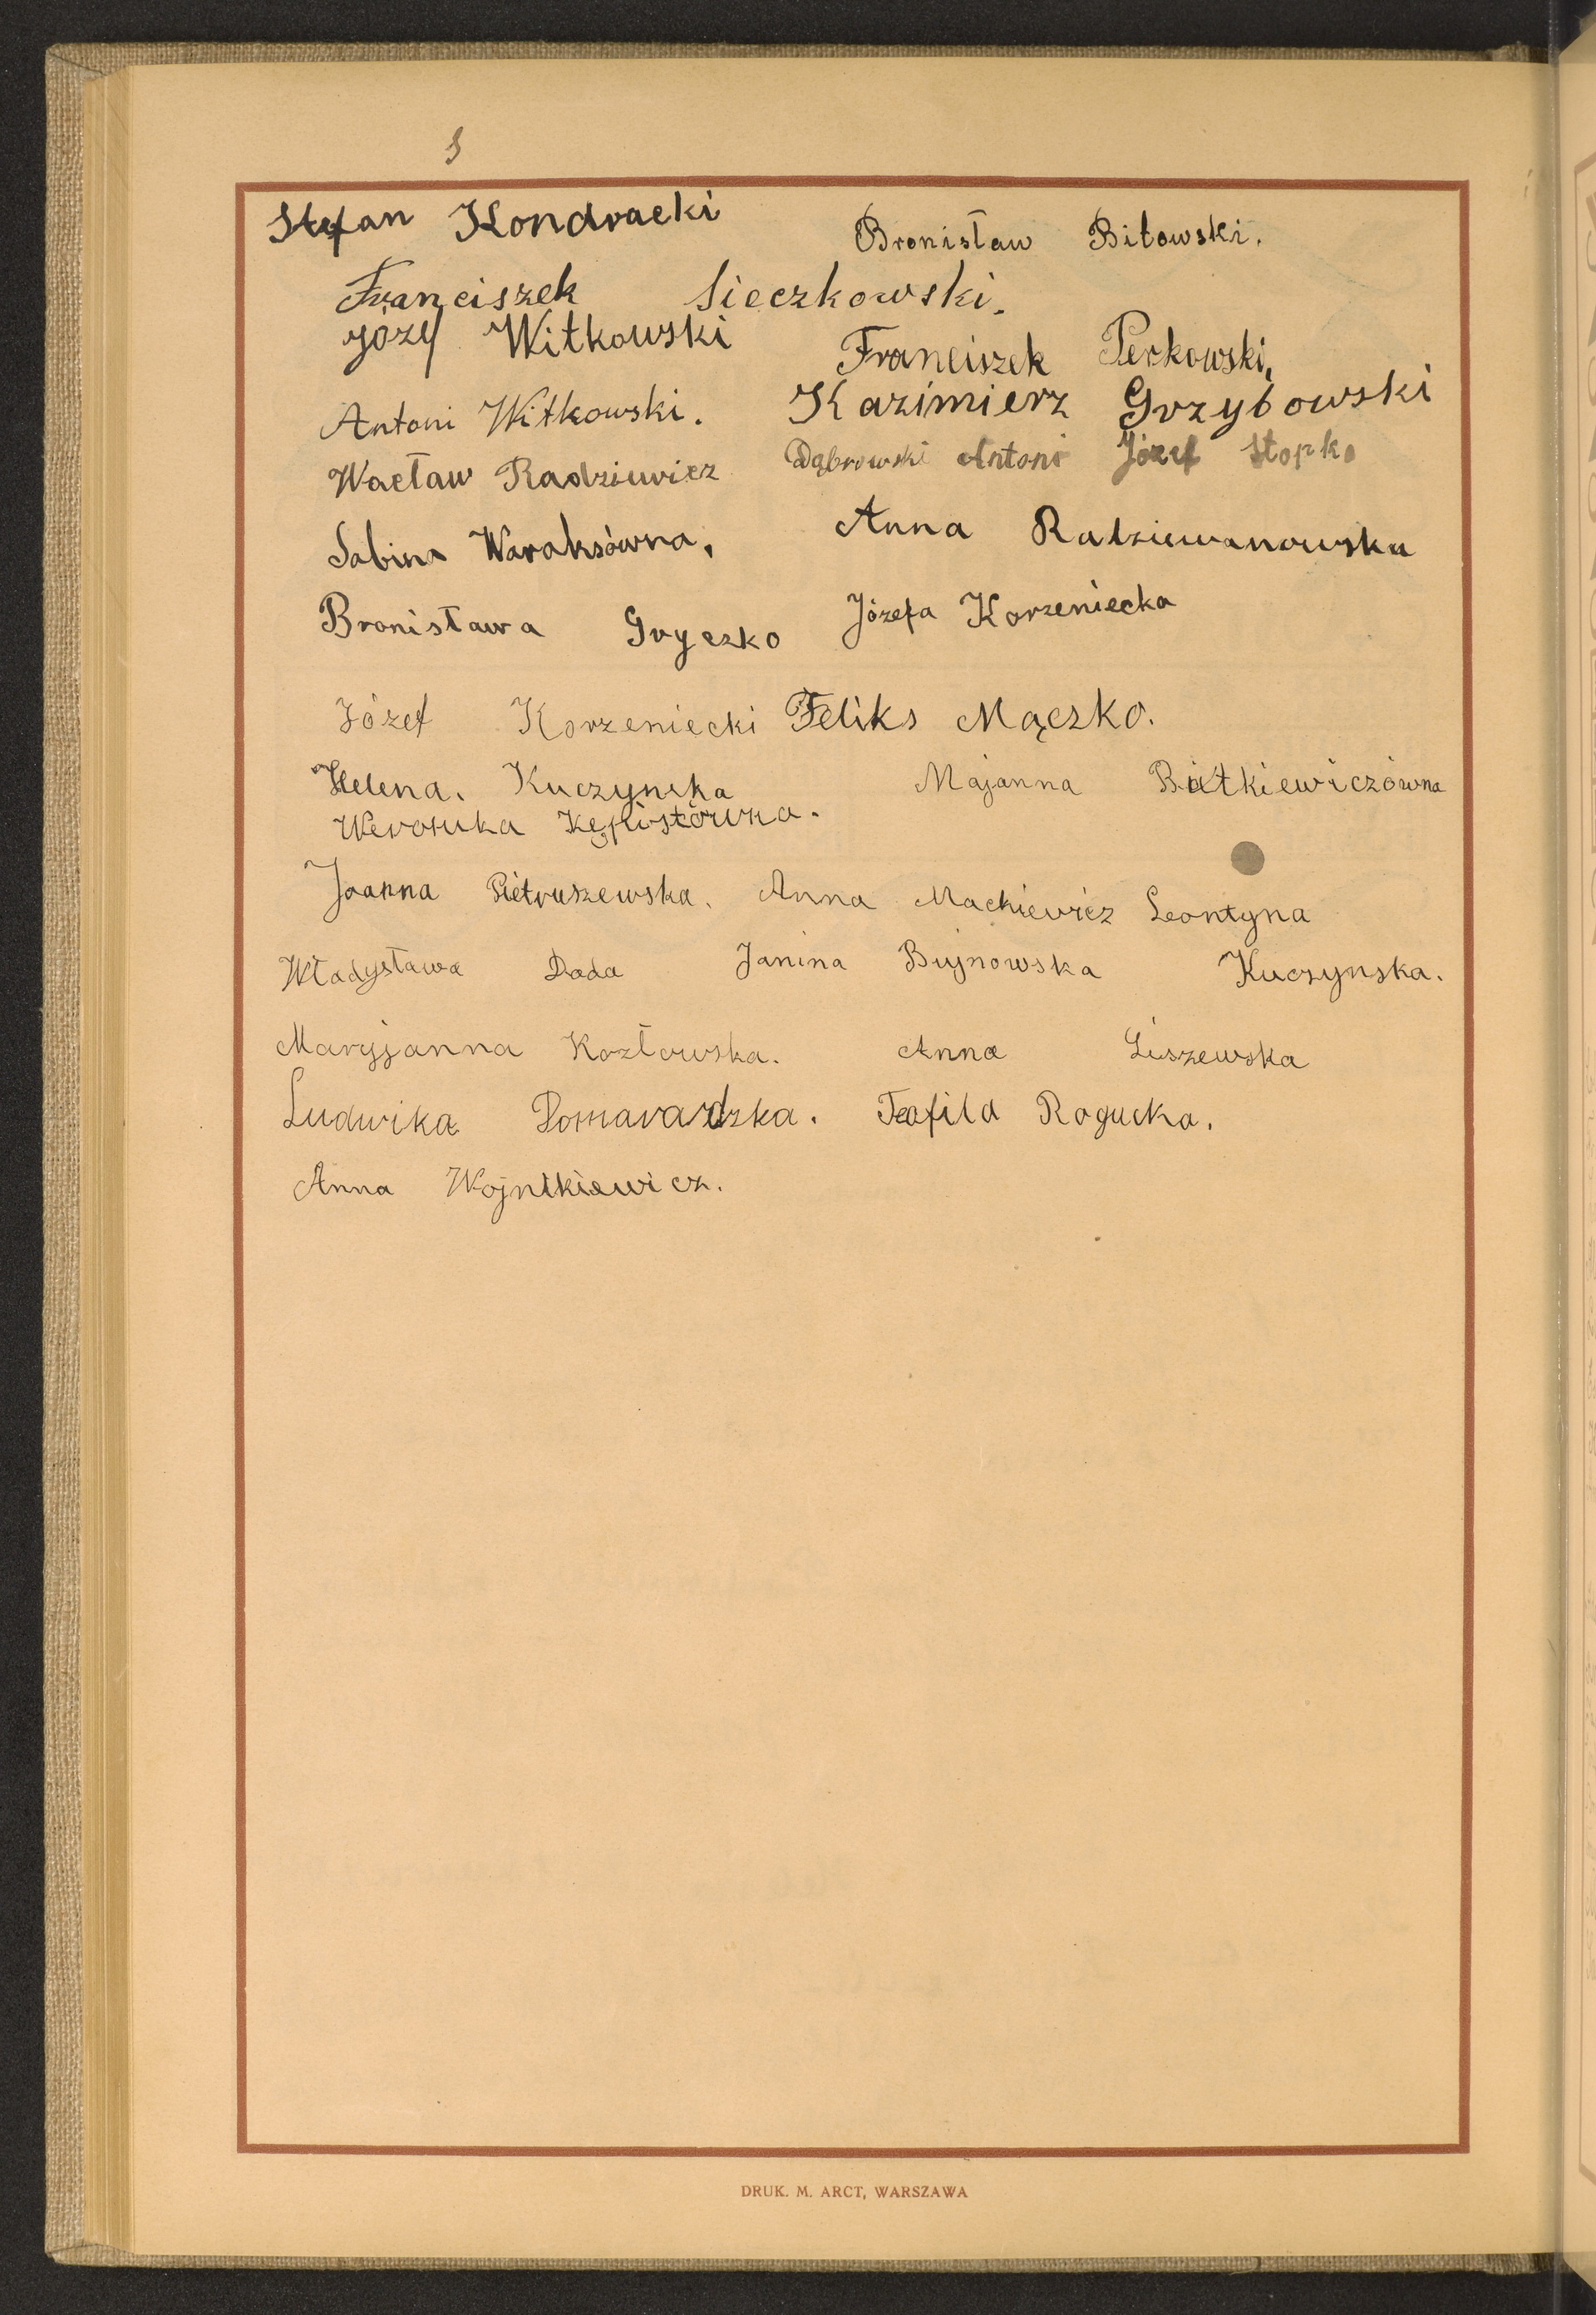 Stefan Kondracki Bronisław Bitowski.
Franciszek Sieczkowski.
Józef Witkowski Franciszek Perkowski,
Antoni Witkowski. Kazimierz Grzybowski
Wacław Radziewicz Dąbrowski Antoni Józef Stopko
Sabina Waraksówna, Anna Radziwanowska
Bronisława Gryczko Józefa Korzeniecka
Józef Korzeniecki Feliks Mączko.
Helena. Kuczynska Majanna Ratkiewiczówna
Weronika
Joanna Pietruszewska. Anna Mackiewicz Leontyna
Władysława Dada Janina Bujnowska Kuczynska.
Maryjanna Kozłowska. Anna Liszewska
Ludwika Teofila Rogucka.
Anna Wojntkiewicz.
DRUK. M. ARCT, WARSZAWA